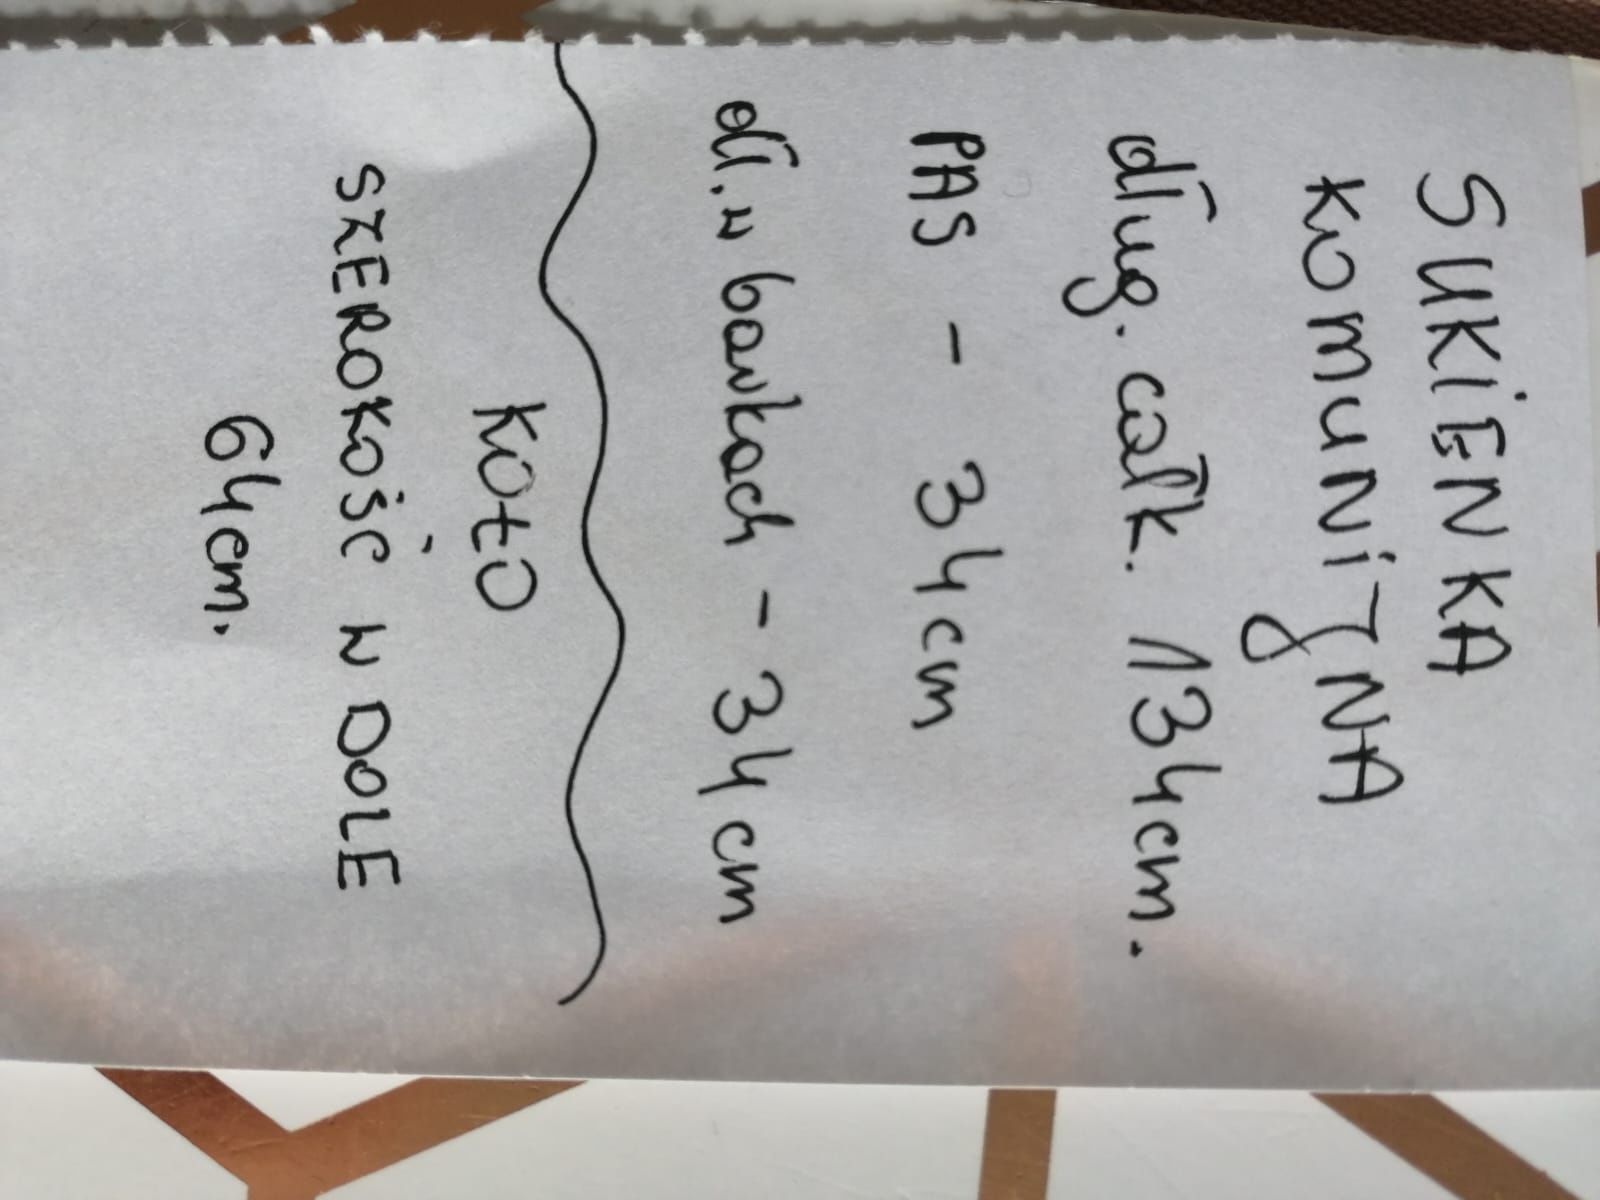 SUKiENKA
KOMUNiJNA
dług. całk. 134cm.
PAS - 34cm
dł. w barkach - 34cm
KOŁO
SZEROKOŚĆ W DOLE
64cm.